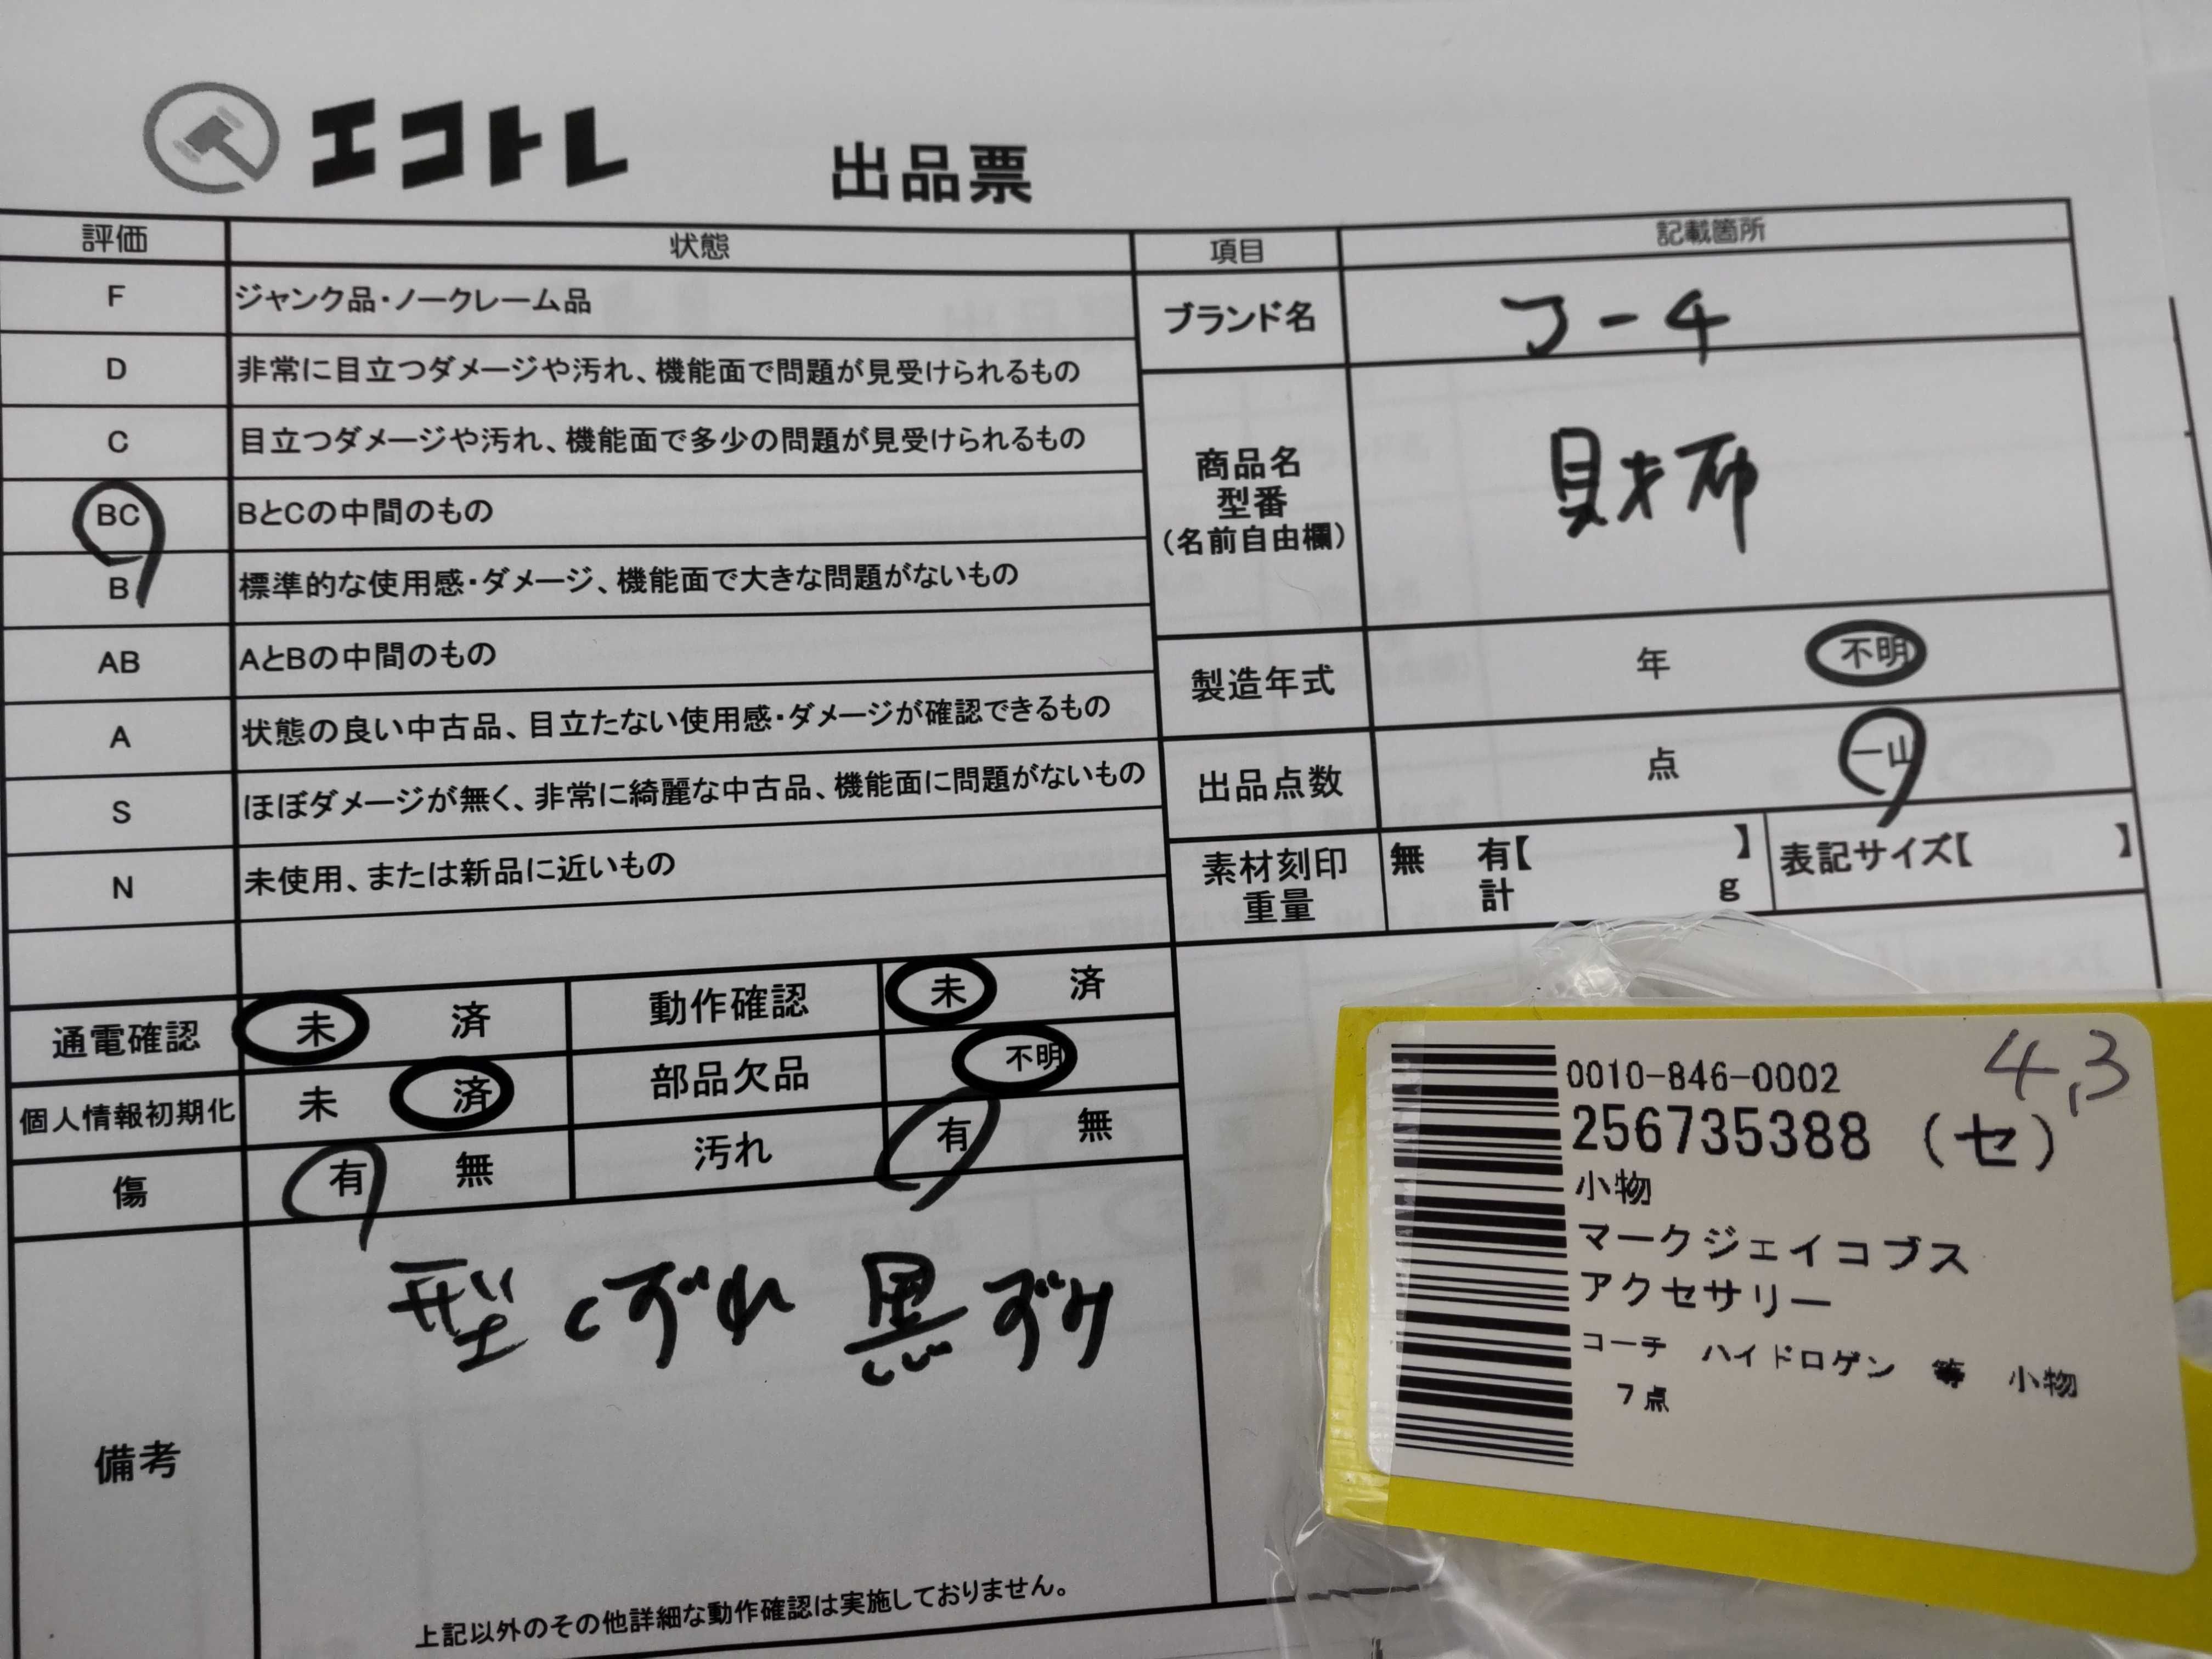 エコトレ 出品票
評価 状態 項目 記載箇所
F ジャンク品・ノークレーム品
D 非常に目立つダメージや汚れ、機能面で問題が見受けられるもの
C 目立つダメージや汚れ、機能面で多少の問題が見受けられるもの
BC BとCの中間のもの
B 標準的な使用感・ダメージ、機能面で大きな問題がないもの
AB AとBの中間のもの
A 状態の良い中古品、目立たない使用感・ダメージが確認できるもの
S ほぼダメージが無く、非常に綺麗な中古品、機能面に問題がないもの
N 未使用、または新品に近いもの
ブランド名 コーチ
商品名
型番
(名前自由欄)
財布
製造年式 年 不明
出品点数 点 一山
素材刻印 無 有【 】 表記サイズ【 】
重量 計 g
通電確認 未 済 動作確認 未 済
個人情報初期化 未 済 部品欠品 不明
傷 有 無 汚れ 有 無
備考
型くずれ 黒ずみ
上記以外のその他詳細な動作確認は実施しておりません。
4,3
0010-846-0002
256735388 (セ)
小物
マークジェイコブス
アクセサリー
コーチ ハイドロゲン 等 小物
7点